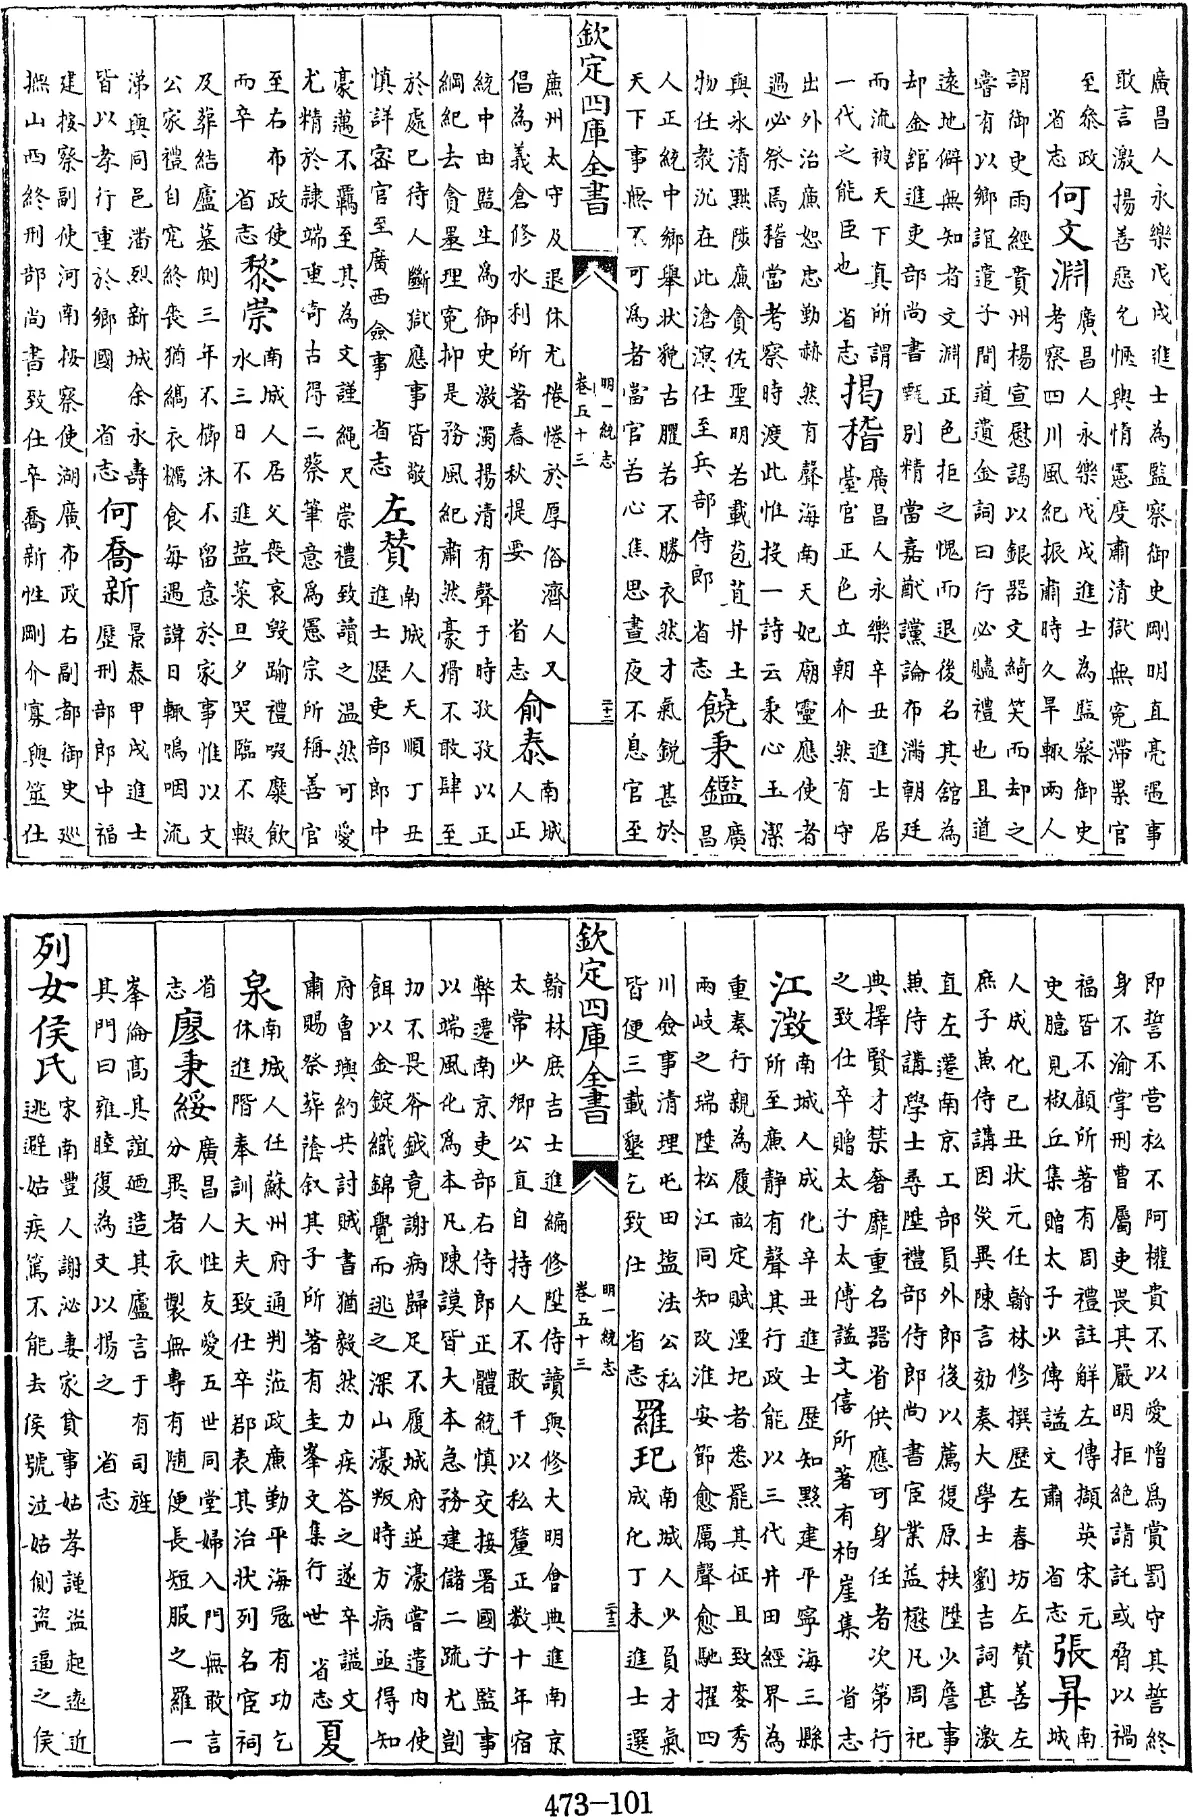 廣昌人永樂戊戌進士為監察御史剛明直亮遇事
敢言激揚善惡乞恆與情憲度肅清獄無寃滯累官
至叅政
省志何文淵廣昌人永樂戊戌進士為監察御史
考察四川風紀振肅時久旱輙雨人
謂御史雨經貴州楊宣慰謁以銀器文綺笑而却之
嘗有以鄉誼遣子間道遺金詞曰行必贐禮也且道
遠地僻無知者文淵正色拒之愧而退後名其舘為
却金舘進吏部尚書甄別精當嘉猷讜論布滿朝廷
而流被天下真所謂
一代之能臣也 省志揭稽廣昌人永樂辛丑進士居
臺官正色立朝介然有守
出外治㢘恕忠勤赫然有聲海南天妃廟靈應使者
過必祭焉稽當考察時渡此惟投一詩云秉心玉潔
與氷清黜陟㢘貪佐聖明若載苞苴幷土
物任教沉在此滄溟仕至兵部侍郎 省志饒秉鑑廣
昌
人正統中鄉舉狀貌古臞若不勝衣然才氣銳甚於
天下事無不可為者當官苦心焦思晝夜不息官至
欽定四庫全書
明一統志
卷五十三
二十二
廉州太守及退休尤惓惓於厚俗濟人又
倡為義倉修水利所著春秋提要 省志俞泰南城
人正
統中由監生為御史激濁揚清有聲于時孜孜以正
綱紀去貪墨理寃抑是務風紀肅然豪猾不敢肆至
於處已待人斷獄應事皆敬
慎詳審官至廣西僉事 省志左贊南城人天順丁丑
進士歴吏部郎中
豪邁不羈至其為文謹繩尺崇禮致讀之温然可愛
尤精於隸端重奇古得二蔡筆意為憲宗所稱善官
至右布政使
而卒 省志黎崇南城人居父喪哀毁踰禮啜糜飲
水三日不進葅菜旦夕哭臨不輟
及葬結廬墓側三年不櫛沐不留意於家事惟以文
公家禮自完終喪猶縞衣糲食毎遇諱日輙嗚咽流
涕與同邑潘烈新城余永壽
皆以孝行重於鄉國 省志何喬新景泰甲戌進士
歴刑部郎中福
建按察副使河南按察使湖廣布政右副都御史巡
撫山西終刑部尚書致仕卒喬新性剛介寡與筮仕
即誓不營私不阿權貴不以愛憎為賞罰守其誓終
身不渝掌刑曹屬吏畏其嚴明拒絶請託或脅以禍
福皆不顧所著有周禮註解左傳擷英宋元
史臆見椒丘集贈太子少傅諡文肅 省志張昇南
城
人成化己丑狀元任翰林修撰歴左春坊左贊善左
庶子兼侍講因災異陳言劾奏大學士劉吉詞甚激
直左遷南京工部員外郎後以薦復原秩陞少詹事
兼侍講學士尋陞禮部侍郎尚書宦業益懋凡周祀
典擇賢才禁奢靡重名器省供應可身任者次第行
之致仕卒贈太子太傅諡文僖所著有柏崖集 省志
江澂南城人成化辛丑進士歴知黟建平寧海三縣
所至㢘静有聲其行政能以三代井田經界為
重奏行親為履畝定賦湮圯者悉罷其征且致麥秀
兩岐之瑞陞松江同知改淮安節愈厲聲愈馳擢四
川僉事清理屯田塩法公私
皆便三載墾乞致仕 省志羅玘南城人少負才氣
成化丁未進士選
欽定四庫全書
明一統志
卷五十三
二十三
翰林庶吉士進編修陞侍讀與修大明會典進南京
太常少卿公直自持人不敢干以私釐正数十年宿
弊遷南京吏部右侍郎正體統慎交接署國子監事
以端風化為本凡陳謨皆大本急務建儲二疏尤剴
切不畏斧鉞竟謝病歸足不履城府逆濠嘗遣内使
餌以金錠織錦覺而逃之深山濠叛時方病亟得知
府會輿約共討賊書猶毅然力疾答之遂卒諡文
肅賜祭葬䕃叙其子所著有圭峯文集行世 省志夏
泉南城人任蘇州府通判蒞政㢘勤平海冦有功乞
休進階奉訓大夫致仕卒郡表其治狀列名宦祠
省
志廖秉綏廣昌人性友愛五世同堂婦入門無敢言
分異者衣製無專有随便長短服之羅一
峯倫高其誼廼造其廬言于有司旌
其門曰雍睦復為文以揚之 省志
列女侯氏宋南豐人謝泌妻家貧事姑孝謹盗起遠近
逃避姑疾篤不能去侯號泣姑側盜逼之侯
473—101